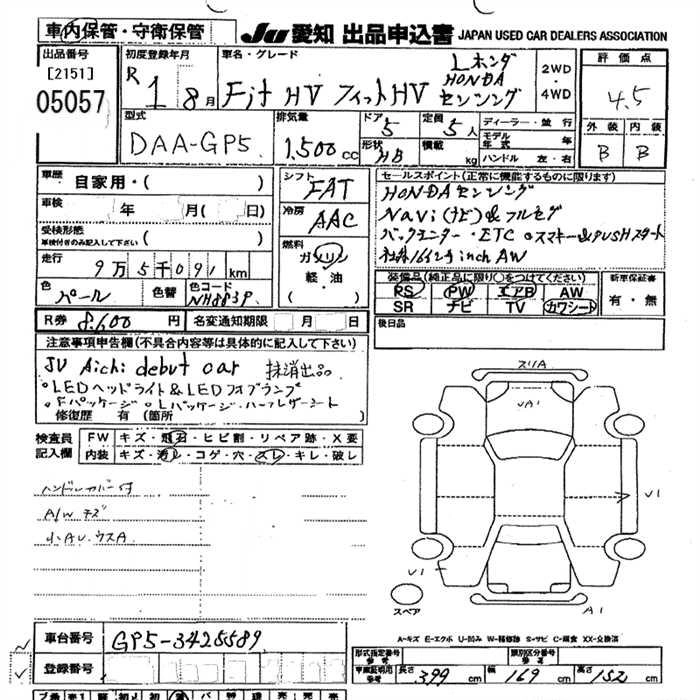 車内保管・守衛保管
JU 愛知 出品申込書 JAPAN USED CAR DEALERS ASSOCIATION
出品番号 初度登録年月 車名・グレード 評価点
[2151]
05057
R 1 8月
Fit HV フィットHV Lホンダ HONDA センシング
2WD・4WD
4.5
型式 排気量 ドア 定員 ディーラー・並行 外装 内装
DAA-GP5 1,500cc 5 5人
モデル年式 年
形状 HB 積載 kg ハンドル 左・右
B B
車歴 自家用・( )
シフト FAT
車検 年 月( 日)
冷房 AAC
受検形態
車検付きのみ記入して下さい ( )
燃料 ガソリン 軽・油 ( )
走行 9万5千091km
色 パール 色替 色コード NH883P
R券 8,600円 名変通知期限 月 日
セールスポイント(正常に機能するものに限ります)
HONDAセンシング
Navi(ナビ)&フルセグ
バックモニター・ETC ○スマキー&PUSHスタート
社外16インチinch AW
装備品(純正品に限り○をつけてください) 新車保証書
PS PW エアB AW 有・無
SR ナビ TV カワシート
後日品
注意事項申告欄(不具合内容等は具体的に記入して下さい)
JU Aichi debut car 抹消出品
○LEDヘッドライト&LEDフォグランプ
○Fパッケージ ○Lパッケージ・ハーフレザーシート
修復歴 有(箇所 )
検査員記入欄
FW キズ・飛石・ヒビ割・リペア跡・X要
内装 キズ・汚れ・コゲ・穴・スレ・キレ・破レ
ハンドルカバー付
A/Wキズ
小AU.ウスA
スリA
UA1
U1
U1
A1
スペア
A-キズ E-エクボ U-凹み W-補修跡 S-サビ C-腐食 XX-交換済
車台番号 GP5-3428589
登録番号
形式指定番号 参考 類別区分番号 参考
車庫証明用参考 長さ 399cm 幅 169cm 高さ 152cm